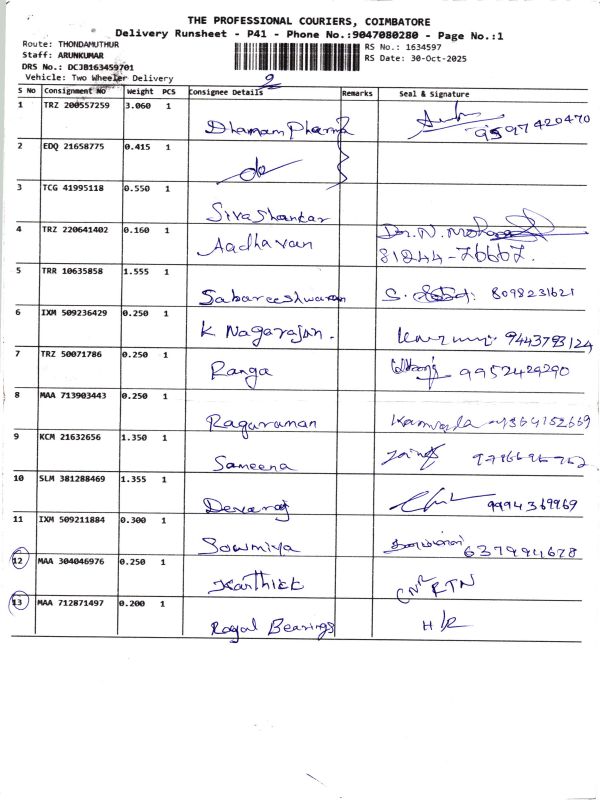 THE PROFESSIONAL COURIERS, COIMBATORE
Delivery Runsheet - P41 - Phone No.:9047080280 - Page No.:1
Route: THONDAMUTHUR
Staff: ARUNKUMAR
DRS No.: DCJB163459701
Vehicle: Two Wheeler Delivery
RS No.: 1634597
RS Date: 30-Oct-2025
S No Consignment No Weight PCS Consignee Details Remarks Seal & Signature
1 TRZ 200557259 3.060 1 Dhanam Pharma 9597420470
2 EDQ 21658775 0.415 1
3 TCG 41995118 0.550 1 Sivashankar
4 TRZ 220641402 0.160 1 Aadhavan Dr. N. 81244-76667.
5 TRR 10635858 1.555 1 Sabareeshwaran S. 8098231621
6 IXM 509236429 0.250 1 K Nagarajan. 9443793124
7 TRZ 50071786 0.250 1 Ranga 9952429290
8 MAA 713903443 0.250 1 Raguraman
9 KCM 21632656 1.350 1 Sameena
10 SLM 381288469 1.355 1 Devaraj 9994369969
11 IXM 509211884 0.300 1 Sowmiya
12 MAA 304046976 0.250 1 Karthick RTN
13 MAA 712871497 0.200 1 Royal Bearings